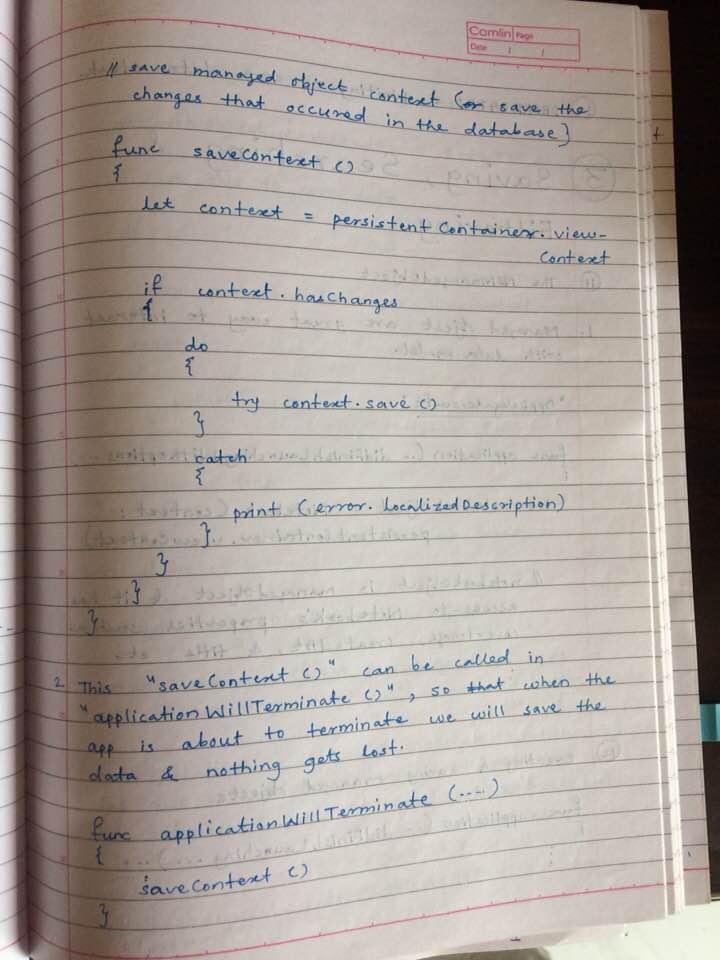 Camlin Page
Date / /
// save managed object context (or save the
changes that occured in the database)
func saveContext ()
{
let context = persistentContainer.view-
Context
if context.hasChanges
{
do
{
try context.save ()
}
catch
{
print (error.localizedDescription)
}
}
}
}
2. This "saveContext ()" can be called in
"applicationWillTerminate ()", so that when the
app is about to terminate we will save the
data & nothing gets lost.
func applicationWillTerminate (.....)
{
saveContext ()
}